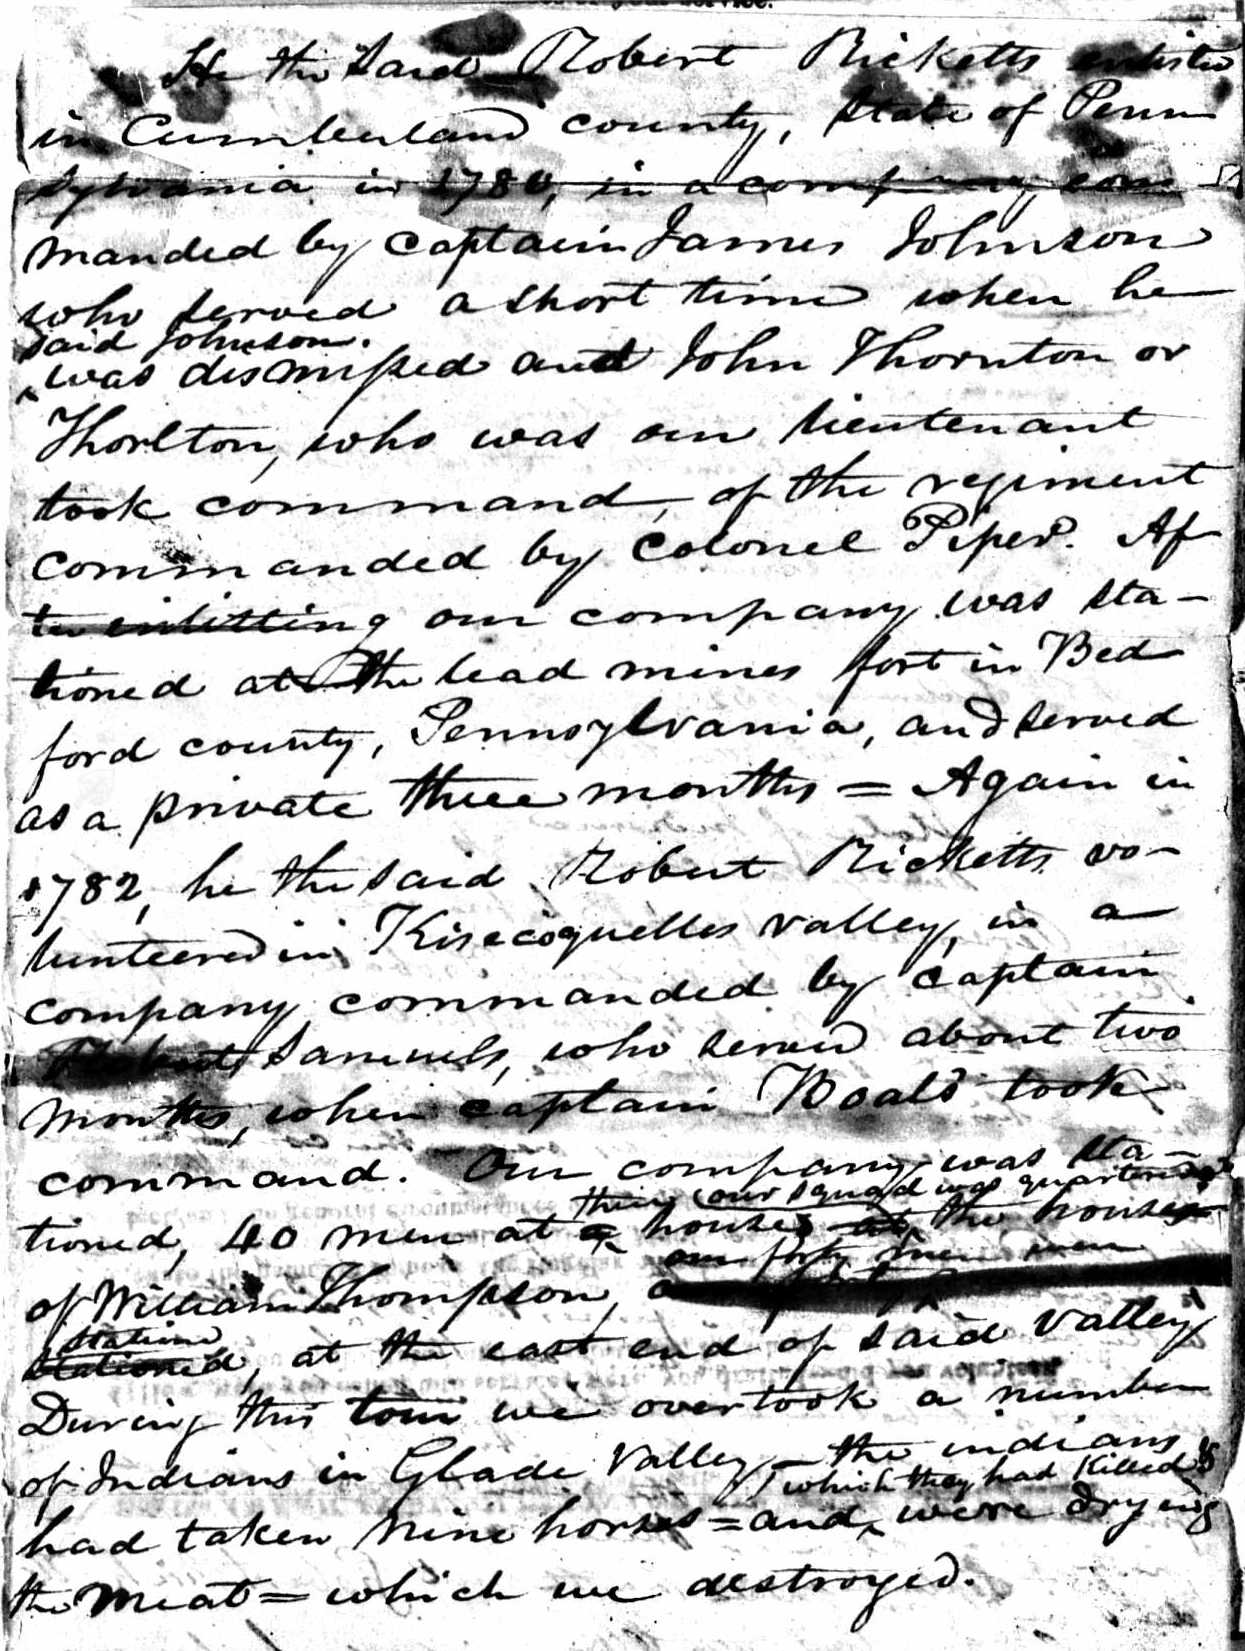 He the said Robert Ricketts enlisted
in Cumberland county, state of Penn
sylvania in 1780, in a company com
manded by captain James Johnson
who served a short time when he
said Johnson.
was dismissed and John Thornton or
Thorlton, who was our lieutenant
took command, of the regiment
commanded by Colonel Piper. Af
ter inlisting our company was sta-
tioned at the lead mines fort in Bed
ford county, Pennsylvania, and served
as a private three months = Again in
1782, he the said Robert Ricketts vo-
lunteered in Kisecoquelles valley, in a
company commanded by captain
Robert Samuels, who served about two
months, when captain Boals took
command. Our company was sta-
their our squad was quartered
tioned, 40 men at a houses at the house
our forty men were
of William Thompson,
station
stationed, at the east end of said valley
During this tour we overtook a number
of Indians in Glade Valley - the indians
which they had killed &
had taken nine horses = and were drying
the meat = which we destroyed.